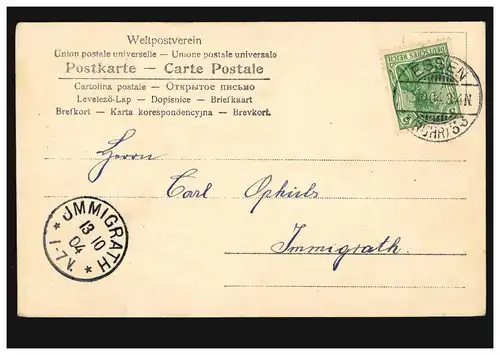 Weltpostverein
Union postale universelle — Unione postale universale
Postkarte — Carte Postale
Cartolina postale — Открытое письмо
Levelező-Lap — Dopisnice — Briefkaart
Brefkort — Karta korespondencyjna — Brevkort.
DEUTSCHES REICH
ESSEN
(RUHR)
Herrn
Carl Ophiels
Immigrath.
* JMMIGRATH *
13 10
04
1-7N.